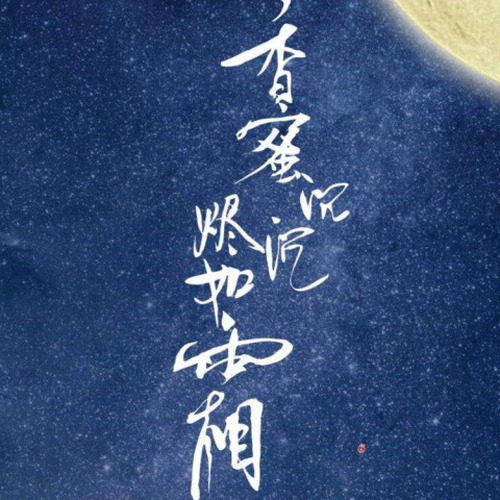 香蜜沉沉
烬如霜